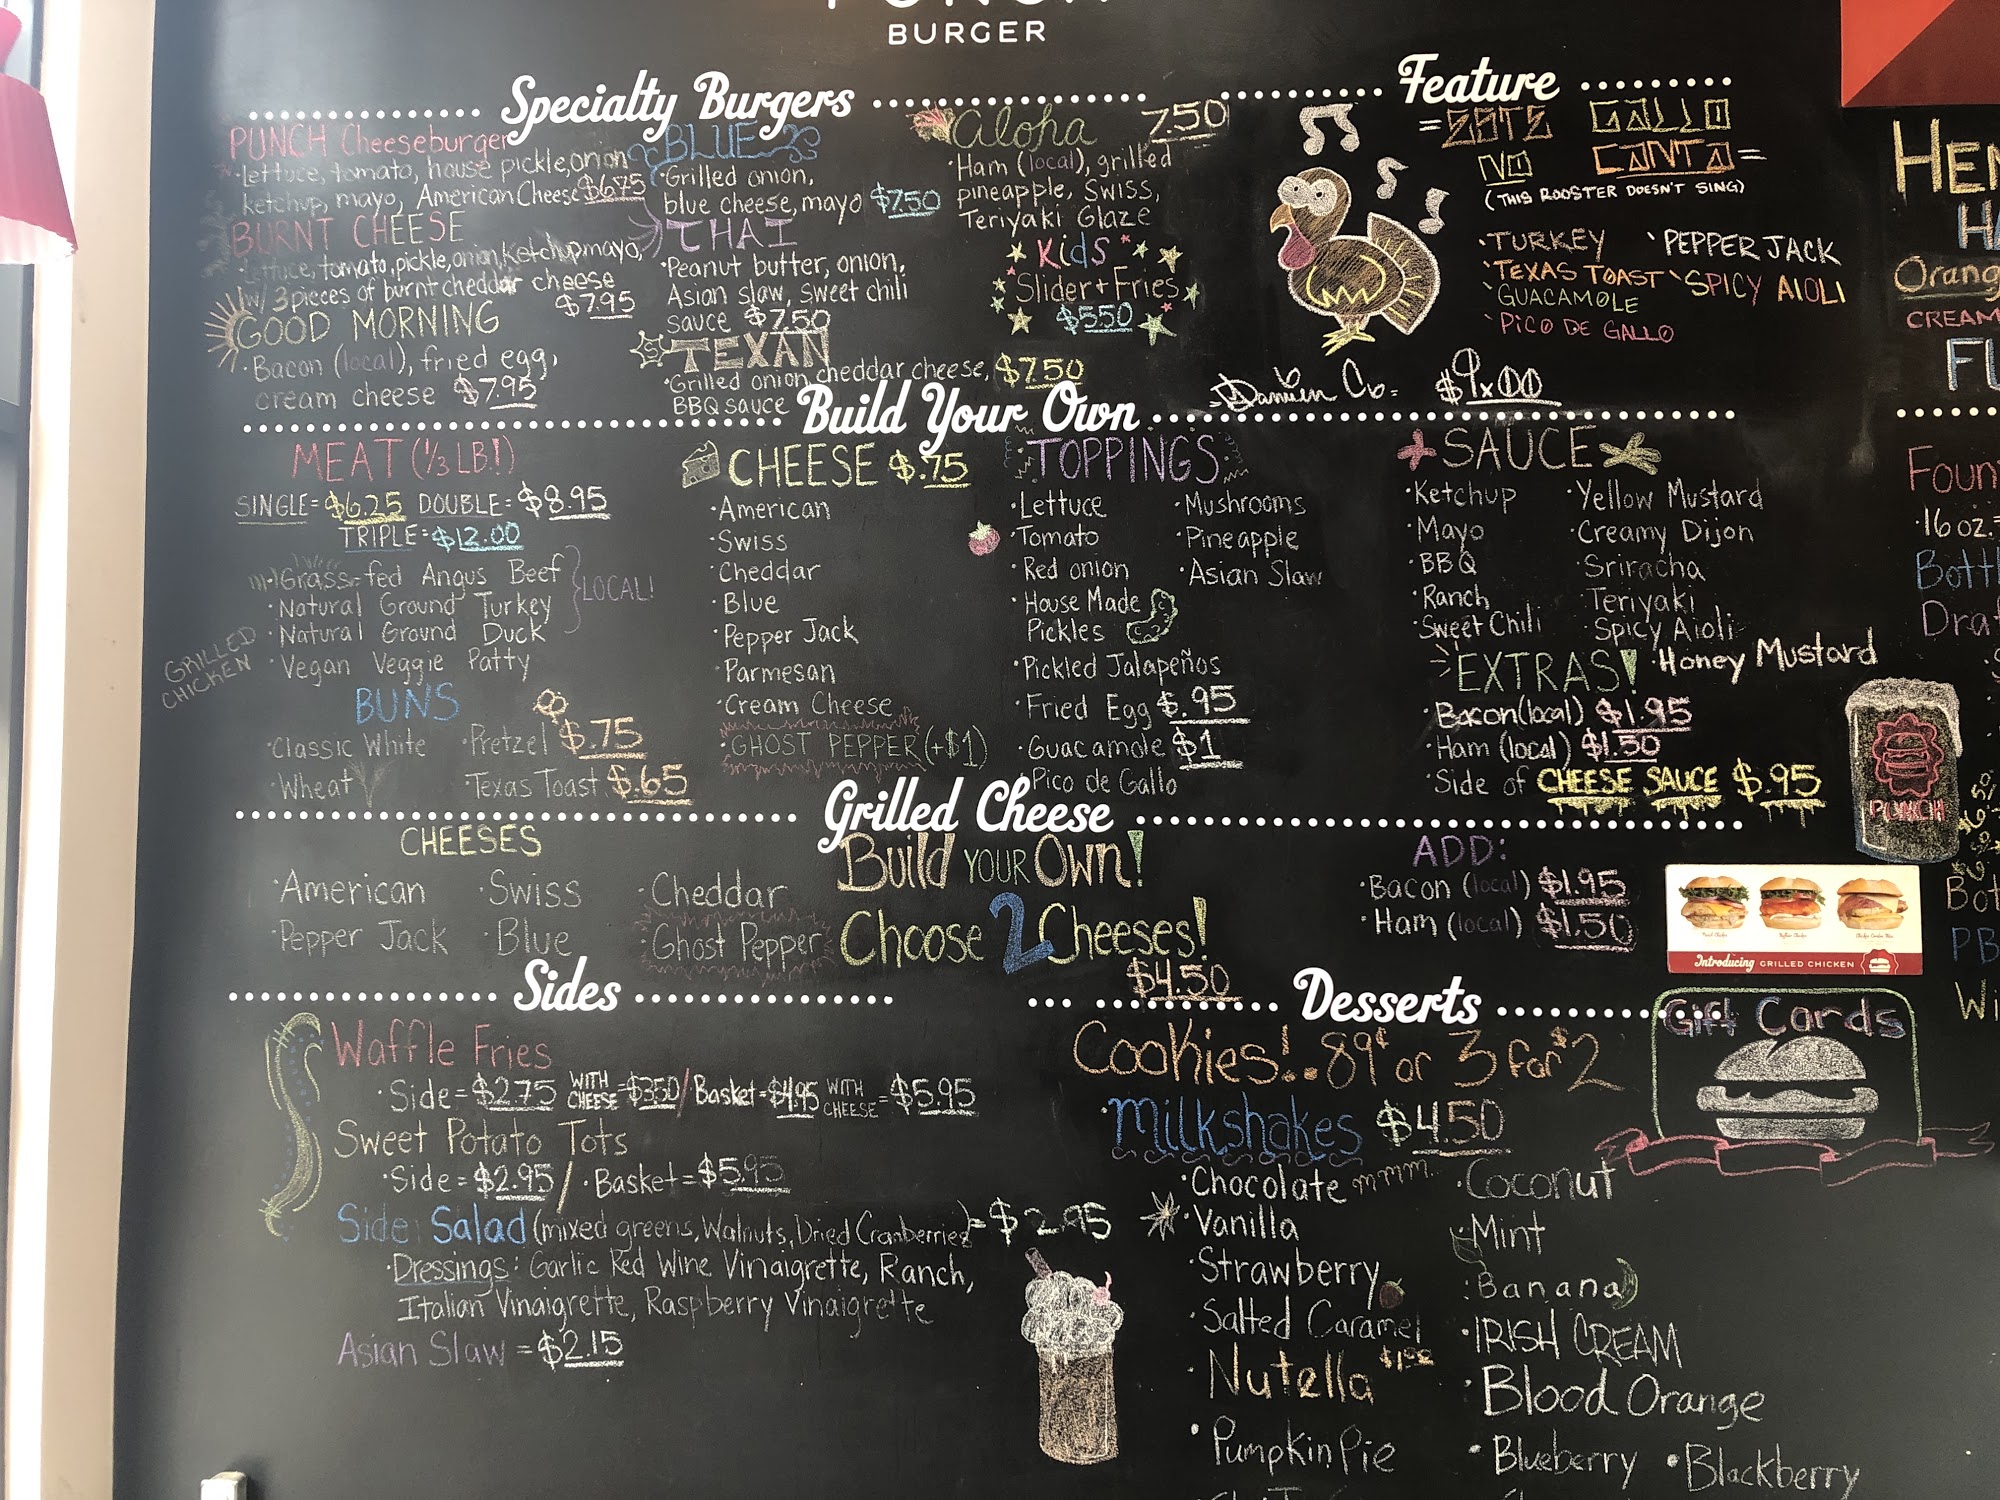 BURGER
Specialty Burgers
PUNCH Cheeseburger
·lettuce, tomato, house pickle, onion
ketchup, mayo, American Cheese $6.75
BURNT CHEESE
·lettuce, tomato, pickle, onion, ketchup, mayo,
w/ 3 pieces of burnt cheddar cheese
$7.95
GOOD MORNING
·Bacon (local), fried egg,
cream cheese $7.95
BLUE
·Grilled onion,
blue cheese, mayo $7.50
THAI
·Peanut butter, onion,
Asian slaw, sweet chili
sauce $7.50
TEXAN
·Grilled onion, cheddar cheese, $7.50
BBQ sauce
Aloha 7.50
·Ham (local), grilled
pineapple, Swiss,
Teriyaki Glaze
Kids
Slider + Fries
$5.50
Feature
=ESTE GALLO
NO CANTA=
(THIS ROOSTER DOESN'T SING)
·TURKEY ·PEPPER JACK
·TEXAS TOAST ·SPICY AIOLI
·GUACAMOLE
·PICO DE GALLO
$9.00
Build Your Own
MEAT (1/3 LB!)
SINGLE=$6.25 DOUBLE=$8.95
TRIPLE=$12.00
·Grass-fed Angus Beef
·Natural Ground Turkey
·Natural Ground Duck
LOCAL!
·Vegan Veggie Patty
GRILLED
CHICKEN
BUNS
·Classic White ·Pretzel $.75
·Wheat ·Texas Toast $.65
CHEESE $.75
·American
·Swiss
·Cheddar
·Blue
·Pepper Jack
·Parmesan
·Cream Cheese
·GHOST PEPPER (+$1)
TOPPINGS
·Lettuce ·Mushrooms
·Tomato ·Pineapple
·Red onion ·Asian Slaw
·House Made
Pickles
·Pickled Jalapeños
·Fried Egg $.95
·Guacamole $1
·Pico de Gallo
SAUCE
·Ketchup ·Yellow Mustard
·Mayo ·Creamy Dijon
·BBQ ·Sriracha
·Ranch ·Teriyaki
·Sweet Chili ·Spicy Aioli
·Honey Mustard
EXTRAS!
·Bacon (local) $1.95
·Ham (local) $1.50
·Side of CHEESE SAUCE $.95
PUNCH
Grilled Cheese
CHEESES
·American ·Swiss ·Cheddar
·Pepper Jack ·Blue ·Ghost Pepper
Build YOUR Own!
Choose 2 Cheeses!
$4.50
ADD:
·Bacon (local) $1.95
·Ham (local) $1.50
Introducing GRILLED CHICKEN
Sides
Waffle Fries
·Side=$2.75 WITH CHEESE=$3.50 / Basket=$4.95 WITH CHEESE=$5.95
Sweet Potato Tots
·Side=$2.95 / ·Basket=$5.95
Side Salad (mixed greens, Walnuts, Dried Cranberries)=$2.95
·Dressings: Garlic Red Wine Vinaigrette, Ranch,
Italian Vinaigrette, Raspberry Vinaigrette
Asian Slaw=$2.15
Desserts
Cookies!..89¢ or 3 for $2
·Milkshakes $4.50
·Chocolate mmm...
·Vanilla
·Strawberry
·Salted Caramel
·Nutella $1.00
·Pumpkin Pie
·Coconut
·Mint
·Banana
·IRISH CREAM
·Blood Orange
·Blueberry ·Blackberry
Gift Cards